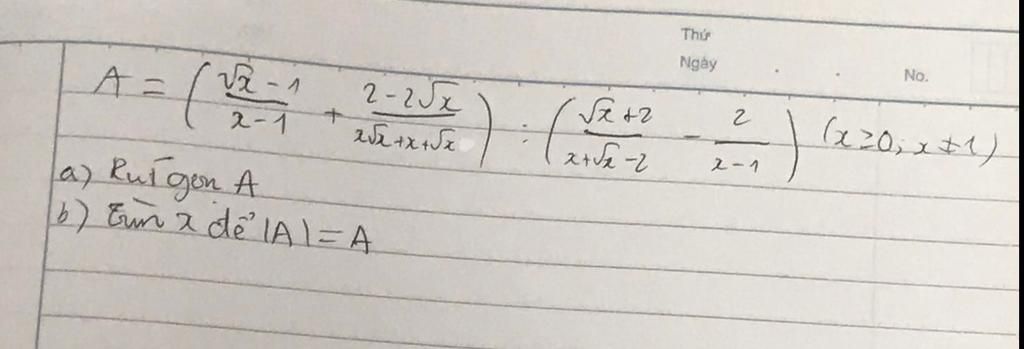 Thứ
Ngày . . No.
A = ( (√x - 1)/(x - 1) + (2 - 2√x)/(x√x + x + √x) ) : ( (√x + 2)/(x + √x - 2) - 2/(x - 1) ) (x ≥ 0; x ≠ 1)
a) Rút gọn A
b) Tìm x để |A| = A